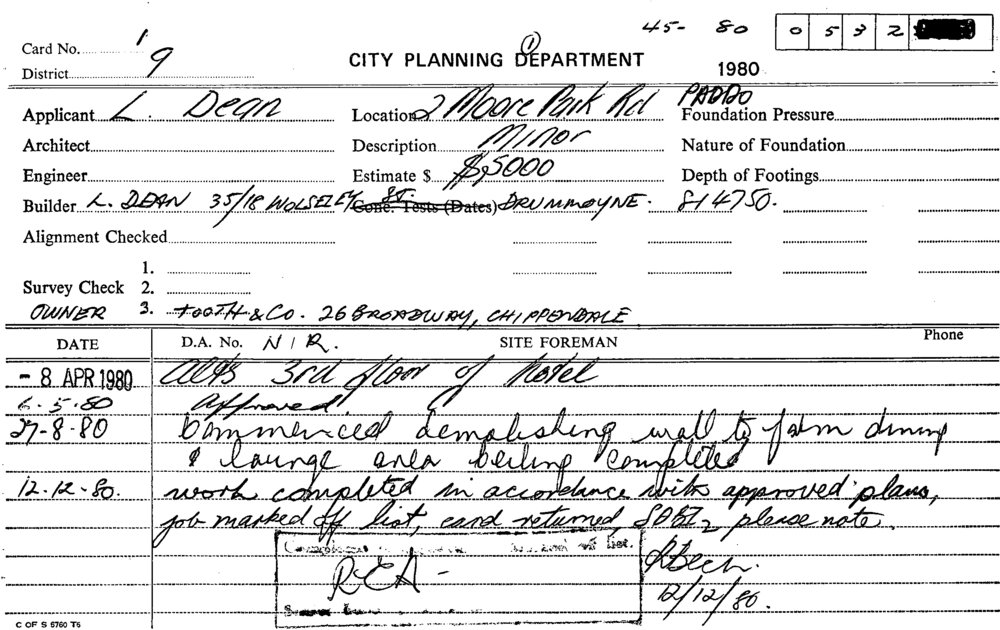 45- 80 0 5 3 2
Card No. 1
District 9
CITY PLANNING DEPARTMENT 1
1980
Applicant L. Dean Location 2 Moore Park Rd PADDO Foundation Pressure
Architect Description Minor Nature of Foundation
Engineer Estimate $ $5000 Depth of Footings
Builder L. DEAN 35/18 WOLSELEY ST. Conc. Tests (Dates) DRUMMOYNE. 814750.
Alignment Checked
1.
Survey Check 2.
OWNER 3. TOOTH & CO. 26 BROADWAY, CHIPPENDALE
DATE D.A. No. N/R. SITE FOREMAN Phone
- 8 APR 1980 Alts 3rd floor of hotel
6-5-80 Approved
27-8-80 Commenced demolishing wall to form dining
& lounge area ceiling completed
12-12-80. work completed in accordance with approved plans,
job marked off list, card returned, please note.
off list.
REA -
RBech.
12/12/80.
C OF S 6760 T5